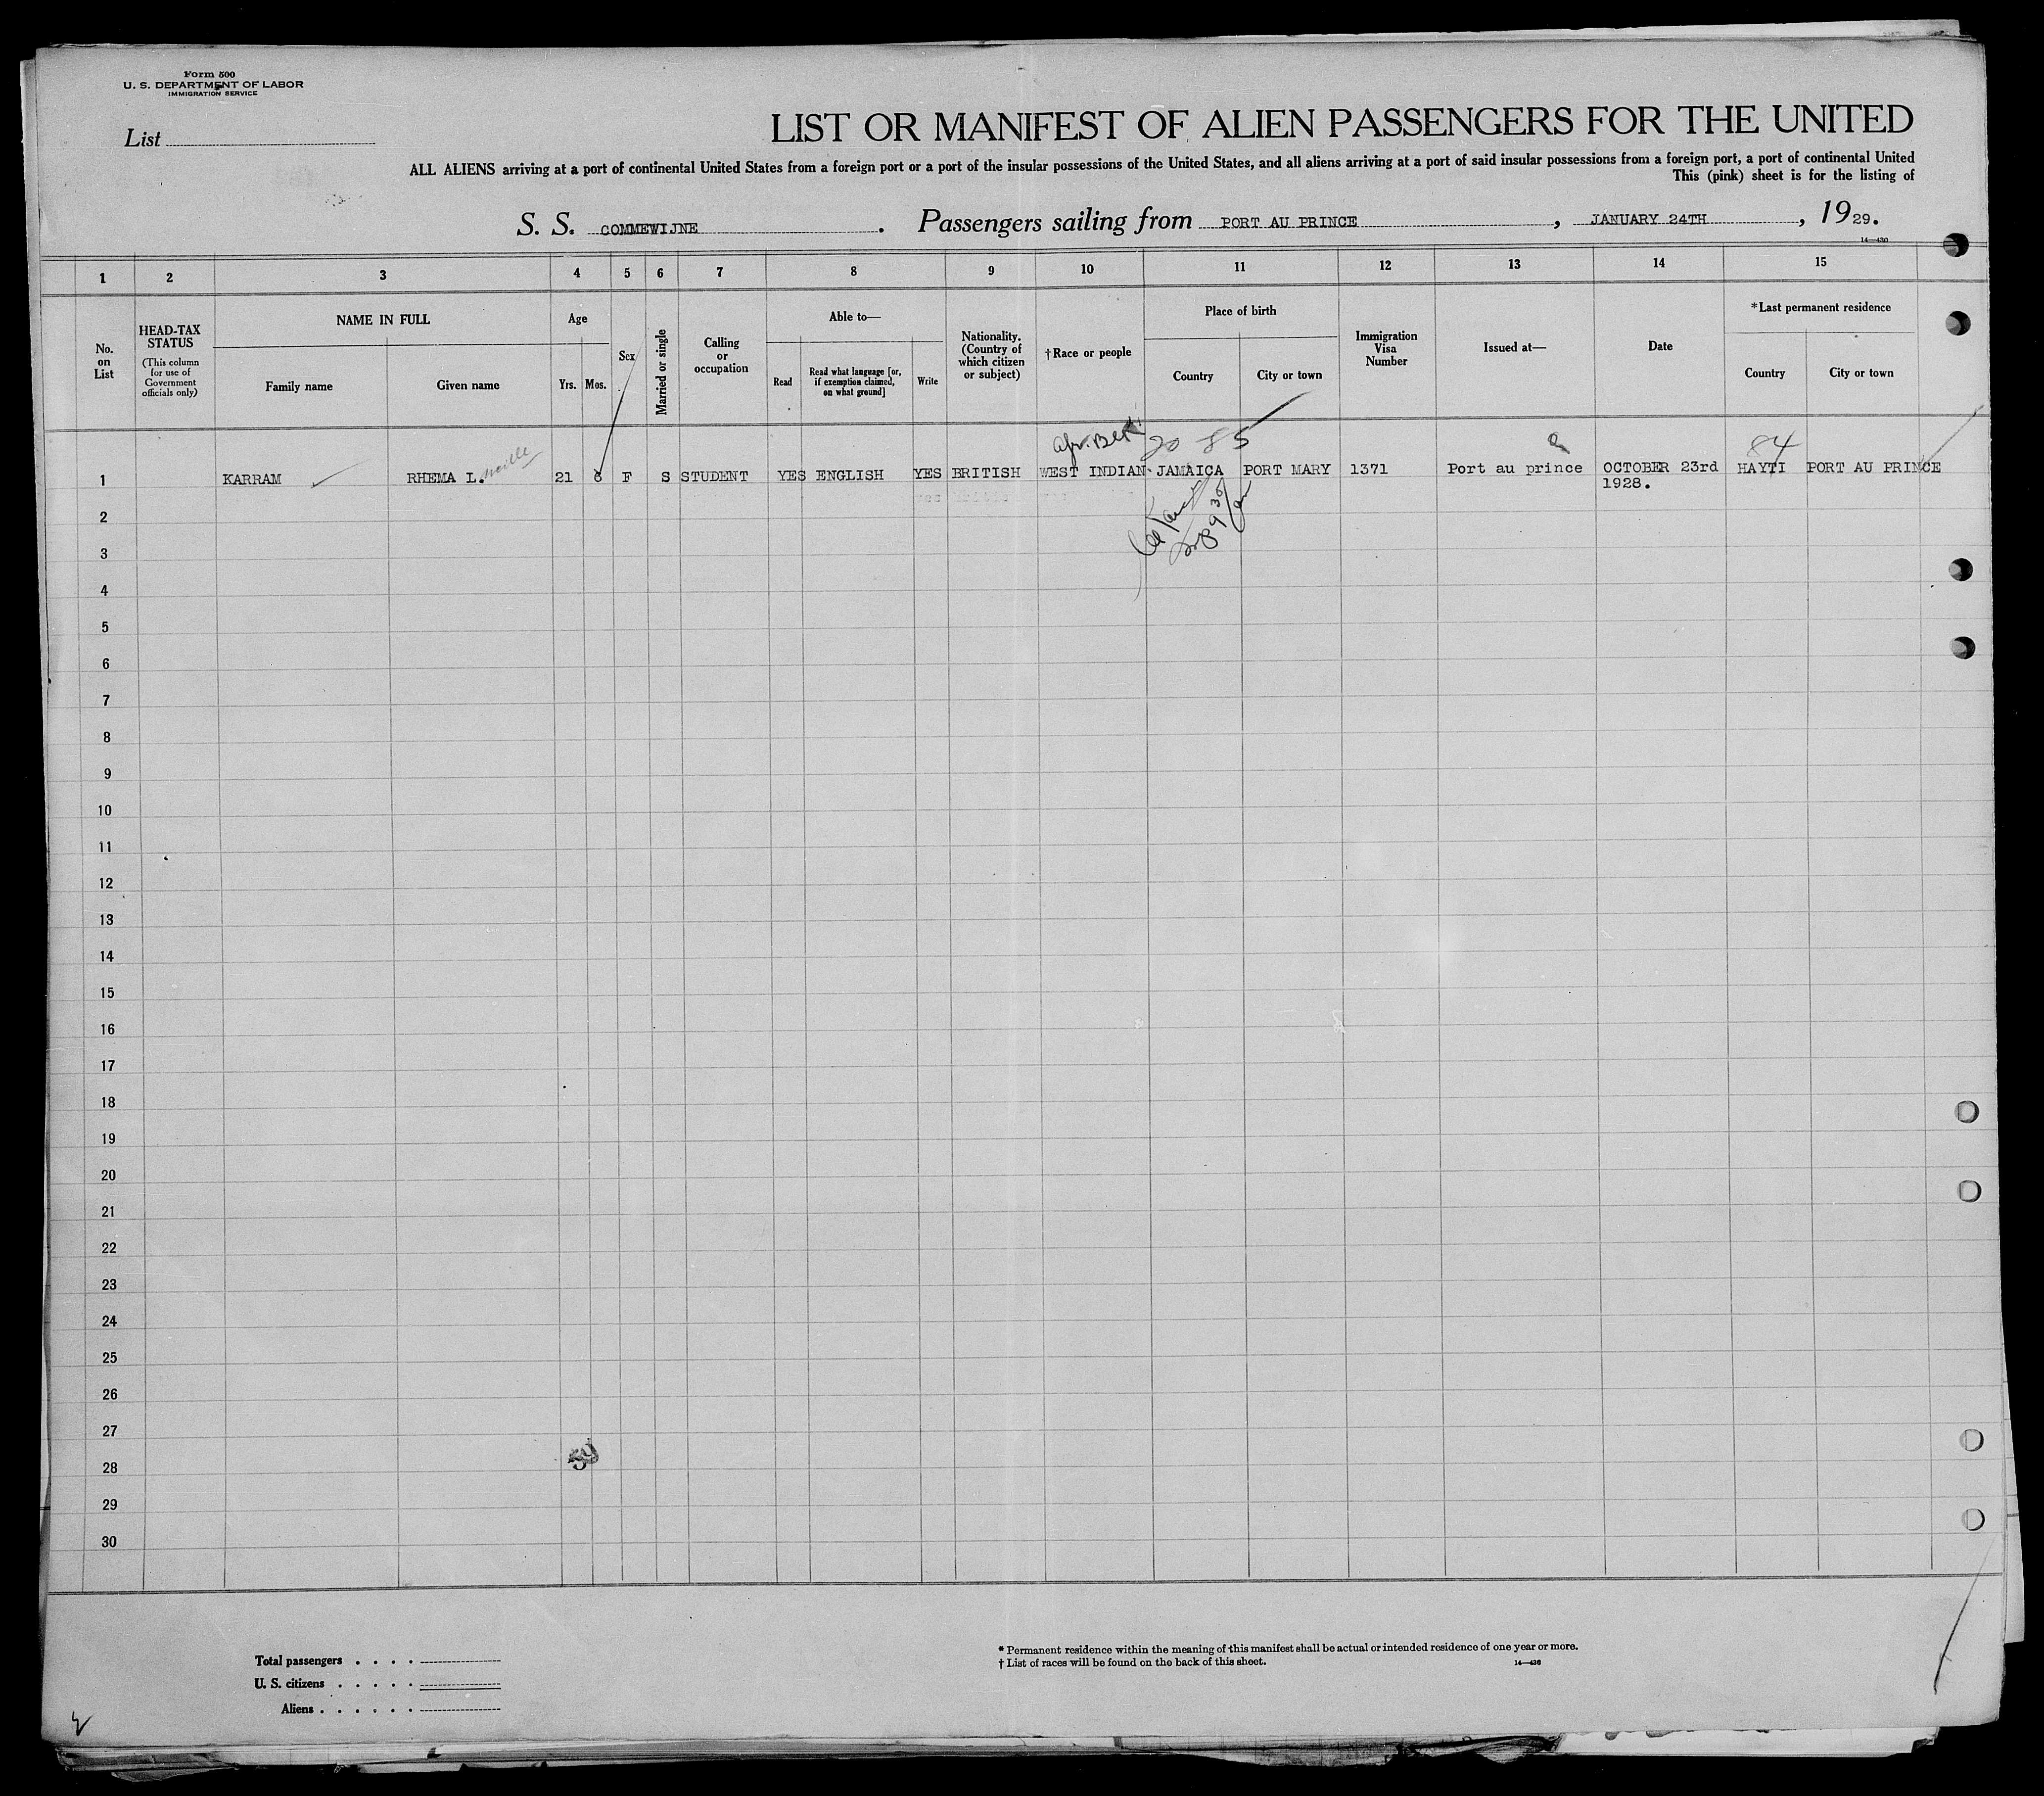 Form 500
U. S. DEPARTMENT OF LABOR
IMMIGRATION SERVICE
List
LIST OR MANIFEST OF ALIEN PASSENGERS FOR THE UNITED
ALL ALIENS arriving at a port of continental United States from a foreign port or a port of the insular possessions of the United States, and all aliens arriving at a port of said insular possessions from a foreign port, a port of continental United
This (pink) sheet is for the listing of
S. S. COMMEWIJNE. Passengers sailing from PORT AU PRINCE, JANUARY 24TH, 1929.
14—430
1 2 3 4 5 6 7 8 9 10 11 12 13 14 15
No. on List
HEAD-TAX STATUS
(This column for use of Government officials only)
NAME IN FULL
Family name Given name
Age
Yrs. Mos.
Sex
Married or single
Calling or occupation
Able to—
Read
Read what language [or, if exemption claimed, on what ground]
Write
Nationality. (Country of which citizen or subject)
†Race or people
Place of birth
Country City or town
Immigration Visa Number
Issued at—
Date
*Last permanent residence
Country City or town
Afr. Blk 20 85 84
1 KARRAM RHEMA L. 21 8 F S STUDENT YES ENGLISH YES BRITISH WEST INDIAN JAMAICA PORT MARY 1371 Port au prince OCTOBER 23rd HAYTI PORT AU PRINCE
1928.
2
3
4
5
6
7
8
9
10
11
12
13
14
15
16
17
18
19
20
21
22
23
24
25
26
27
28
29
30
Total passengers . . . .
U. S. citizens . . . . .
Aliens . . . . . .
* Permanent residence within the meaning of this manifest shall be actual or intended residence of one year or more.
† List of races will be found on the back of this sheet.
14—430